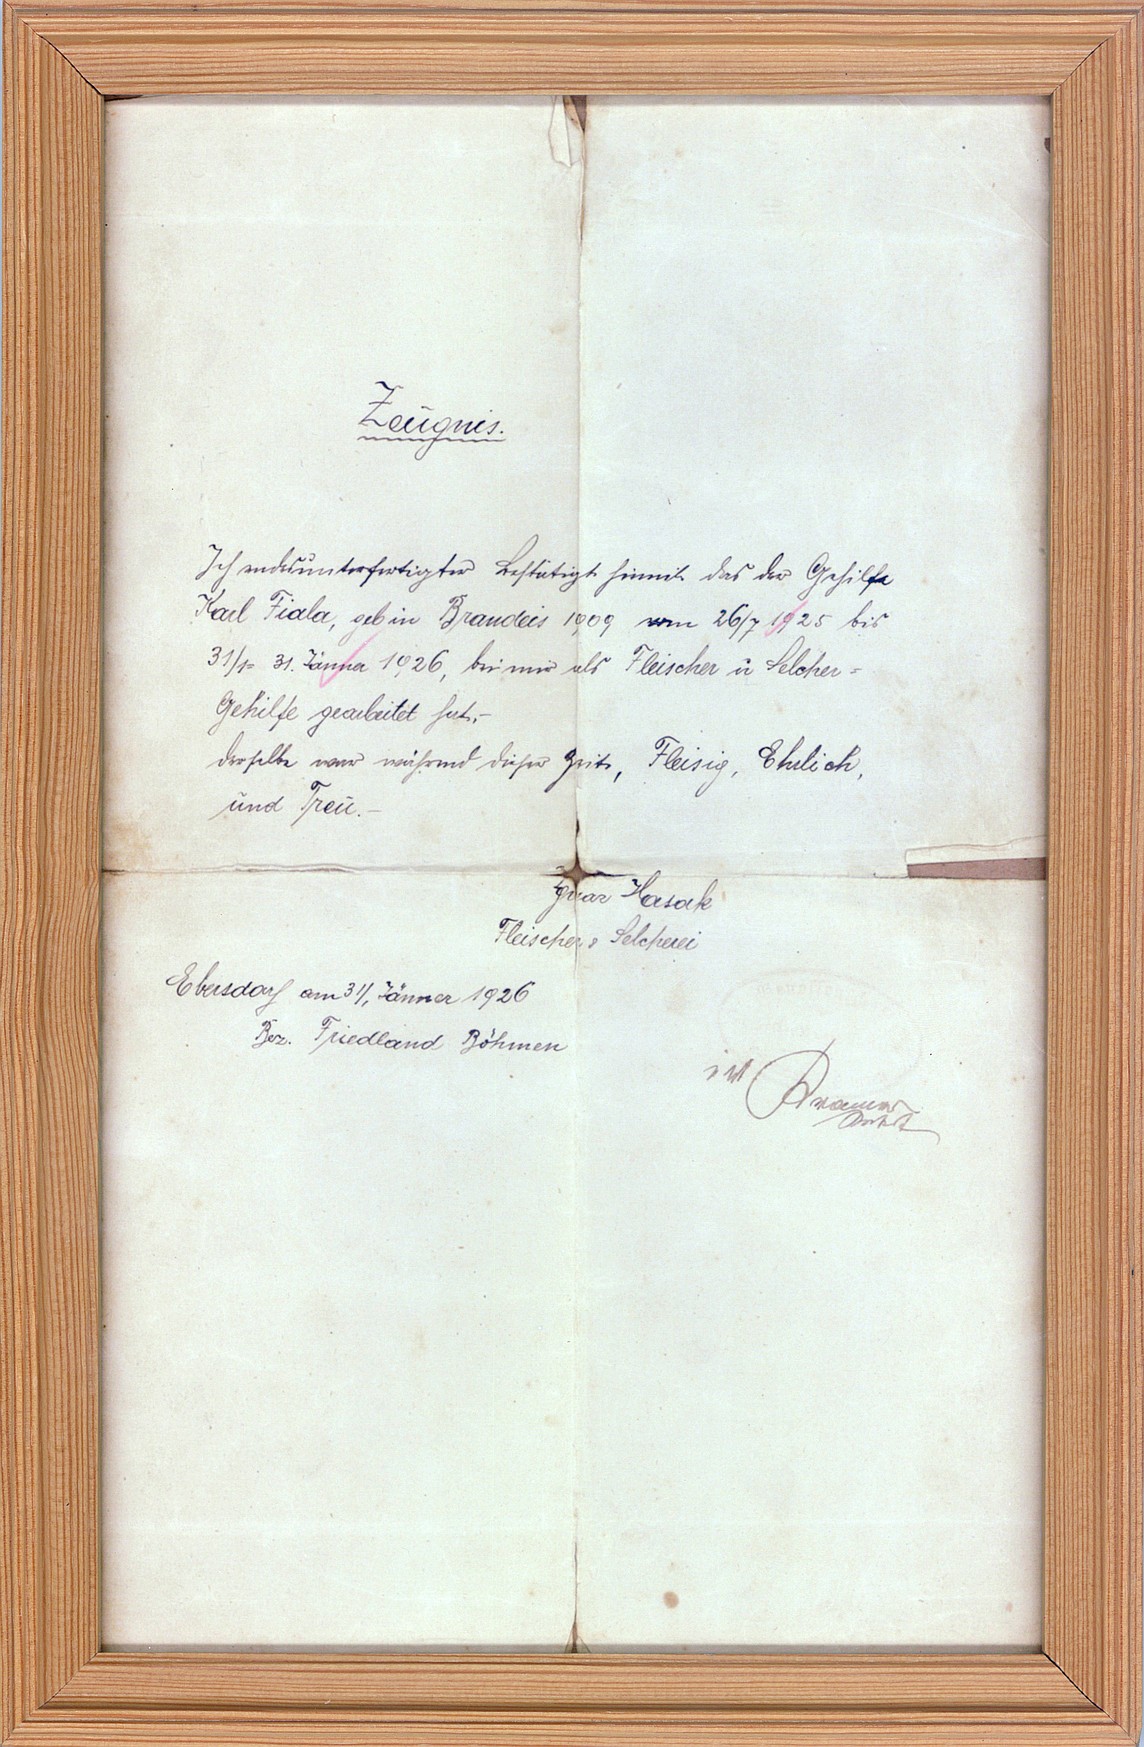 Zeugnis.
Ich endesunterfertigter Bestätigt hiemit das der Gehilfe
Karl Fiala, geb in Brandeis 1909 vom 26/7 1925 bis
31/1 31. Jänner 1926, bei mir als Fleischer u Selcher=
Gehilfe gearbeitet hat.-
derselbe war während dieser Zeit, Fleisig, Ehrlich,
und Treu.-
Hasak
Fleischer Selcherei
Ebersdorf am 31/, Jänner 1926
Bez. Friedland Böhmen